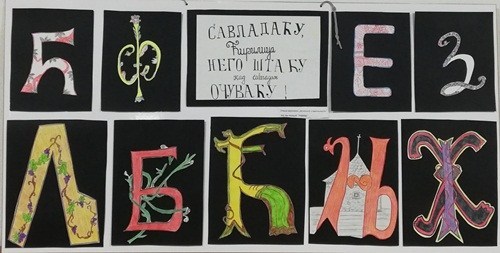 Б Ф
САВЛАДАЋУ,
Ћирилицу
НЕГО ШТА ЋУ
кад савладам
ОЧУВАЋУ !
Е З
Л Б Ћ Њ Х